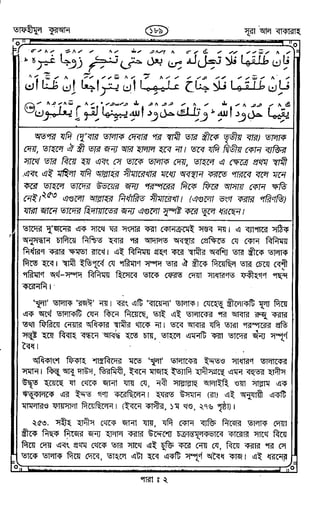 তাফহীমুল কুরআন
১৮৯
সূরা আল বাকারাহ
فَإِنْ طَلَّقَهَا فَلَا تَحِلُّ لَهُ مِنْ بَعْدُ حَتَّى تَنْكِحَ زَوْجًا غَيْرَهُ
فَإِنْ طَلَّقَهَا فَلَا جُنَاحَ عَلَيْهِمَا أَنْ يَتَرَاجَعَا إِنْ ظَنَّا أَنْ
يُقِيمَا حُدُودَ اللَّهِ وَتِلْكَ حُدُودُ اللَّهِ يُبَيِّنُهَا لِقَوْمٍ يَعْلَمُونَ
অতপর যদি (দু'বার তালাক দেবার পর স্বামী তার স্ত্রীকে তৃতীয় বার) তালাক
দেয়, তাহলে ঐ স্ত্রী তার জন্য আর হালাল হবে না। তবে যদি দ্বিতীয় কোন ব্যক্তির
সাথে তার বিয়ে হয় এবং সে তাকে তালাক দেয়, তাহলে এ ক্ষেত্রে প্রথম স্বামী
এবং এই মহিলা যদি আল্লাহর সীমারেখার মধ্যে অবস্থান করতে পারবে বলে মনে
করে তাহলে তাদের উভয়ের জন্য পরস্পরের দিকে ফিরে আসায় কোন ক্ষতি
নেই।২৫৩ এগুলো আল্লাহর নির্ধারিত সীমারেখা। (এগুলো ভংগ করার পরিণতি)
যারা জানে তাদের হিদায়াতের জন্য এগুলো সুস্পষ্ট করে তুলে ধরছেন।
তাদের দু'জনের এক সাথে ঘর সংসার করা কোনক্রমেই সম্ভব নয়। এ ব্যাপারে সঠিক
অনুসন্ধান চালিয়ে নিশ্চিত হবার পর আদালত অবস্থার প্রেক্ষিতে যে কোন বিনিময়
নির্ধারণ করার ক্ষমতা রাখে। এই বিনিময় গ্রহণ করে স্বামীর অবশ্যি তার স্ত্রীকে তালাক
দিতে হবে। স্বামী ইতিপূর্বে যে পরিমাণ সম্পদ তার ঐ স্ত্রীকে দিয়েছিল তার চেয়ে বেশী
পরিমাণ অর্থ-সম্পদ বিনিময় হিসেবে তাকে ফেরত দেয়া সাধারণত ফকীহগণ পছন্দ
করেননি।
'খুলা' তালাক 'রজঈ' নয়। বরং এটি 'বায়েনা' তালাক। যেহেতু স্ত্রীলোকটি মূল্য দিয়ে
এক অর্থে তালাকটি যেন কিনে নিয়েছে, তাই এই তালাকের পর আবার রুজু করার
তথা ফিরিয়ে নেয়ার অধিকার স্বামীর থাকে না। তবে আবার যদি তারা পরস্পরের প্রতি
সন্তুষ্ট হয়ে বিবাহ বন্ধনে আবদ্ধ হতে চায়, তাহলে এমনটি করা তাদের জন্য সম্পূর্ণ
বৈধ।
অধিকাংশ ফিকাহ শাস্ত্রবিদের মতে 'খুলা' তালাকের ইদ্দতও সাধারণ তালাকের
সমান। কিন্তু আবু দাউদ, তিরমিযী, ইবনে মাজাহ ইত্যাদি হাদীসগ্রন্থে এমন বহুতর হাদীস
উদ্ধৃত হয়েছে যা থেকে জানা যায় যে, নবী সাল্লাল্লাহু আলাইহি ওয়া সাল্লাম এক
ঋতুকালকে এর ইদ্দত গণ্য করেছিলেন। হযরত উসমান (রা) এই অনুযায়ী একটি
মামলারও ফায়সালা দিয়েছিলেন। (ইবনে কাসীর, ১ম খণ্ড, ২৭৬ পৃষ্ঠা)।
২৫৩. সহীহ হাদীস থেকে জানা যায়, যদি কোন ব্যক্তি নিজের তালাক দেয়া
স্ত্রীকে নিছক নিজের জন্য হালাল করার উদ্দেশ্যে চক্রান্তমূলকভাবে কারোর সাথে বিয়ে
দিয়ে দেয় এবং প্রথম থেকে তার সাথে এই চুক্তি করে নেয় যে, বিয়ে করার পর সে
তাকে তালাক দিয়ে দেবে, তাহলে এটা হবে একটি সম্পূর্ণ অবৈধ কাজ। এই ধরনের
পারা ঃ ২